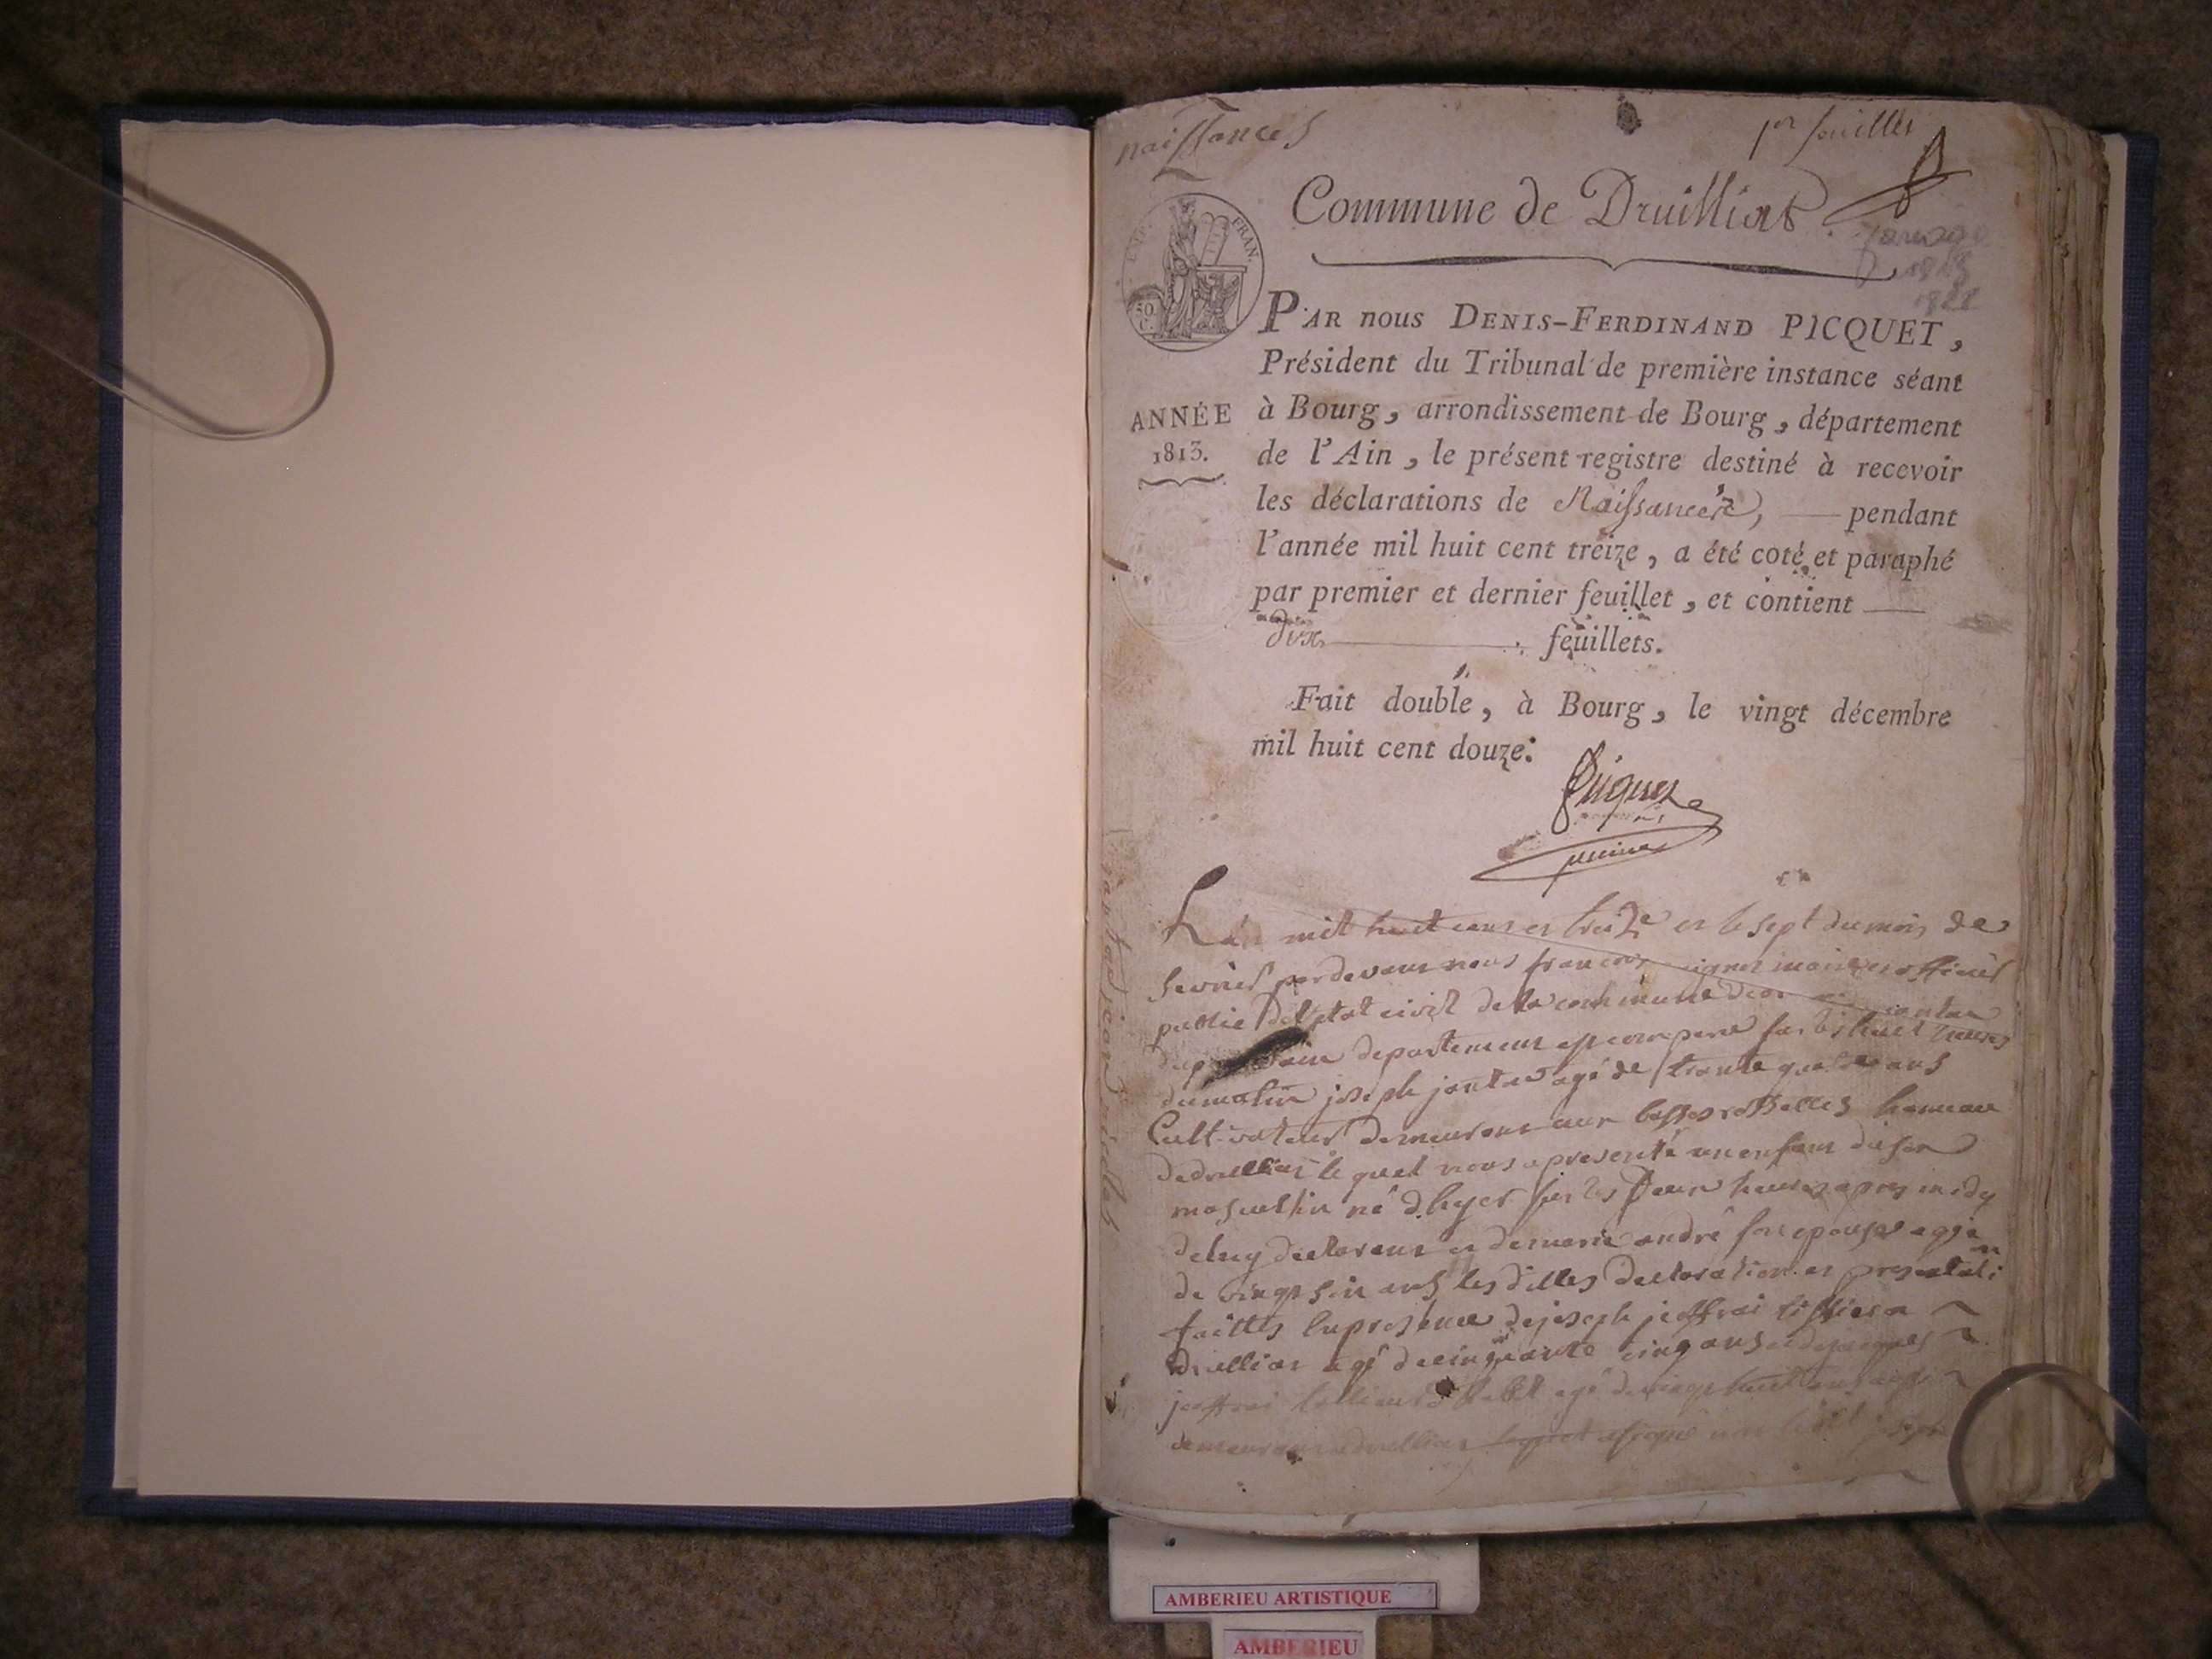 naissances
1er feuillet
Commune de Druilliat
EMP. FRAN.
50 C.
1813
1822
PAR nous DENIS-FERDINAND PICQUET,
Président du Tribunal de première instance séant
à Bourg, arrondissement de Bourg, département
de l'Ain, le présent registre destiné à recevoir
les déclarations de Naissances, pendant
l'année mil huit cent treize, a été coté et paraphé
par premier et dernier feuillet, et contient
dix feuillets.
ANNÉE
1813.
Fait double, à Bourg, le vingt décembre
mil huit cent douze.
Picquet
Lan mil huit cens et treize et le sept du mois de
fevrier pardevant nous francois maire et officier
public de letat civil de la commune de canton
departement est comparu sur les huit heures
du matin joseph jantan agé de trante quatre ans
Cultivateur demeurant aux basses hameau
dedruillias le quel nous a presenté un enfant du sexe
masculin né dhyer sur les deux heures apres midy
deluy declarant et demarie andré son epouse aggé
de vingt six ans les dittes declaration et presentation
faittes en presence de joseph jeoffrai tissier a
druillias agé decinquante cinq ans et dejacques
jeoffrai agé de vingt huit ans
demeurant adruillias joseph
AMBERIEU ARTISTIQUE
AMBERIEU